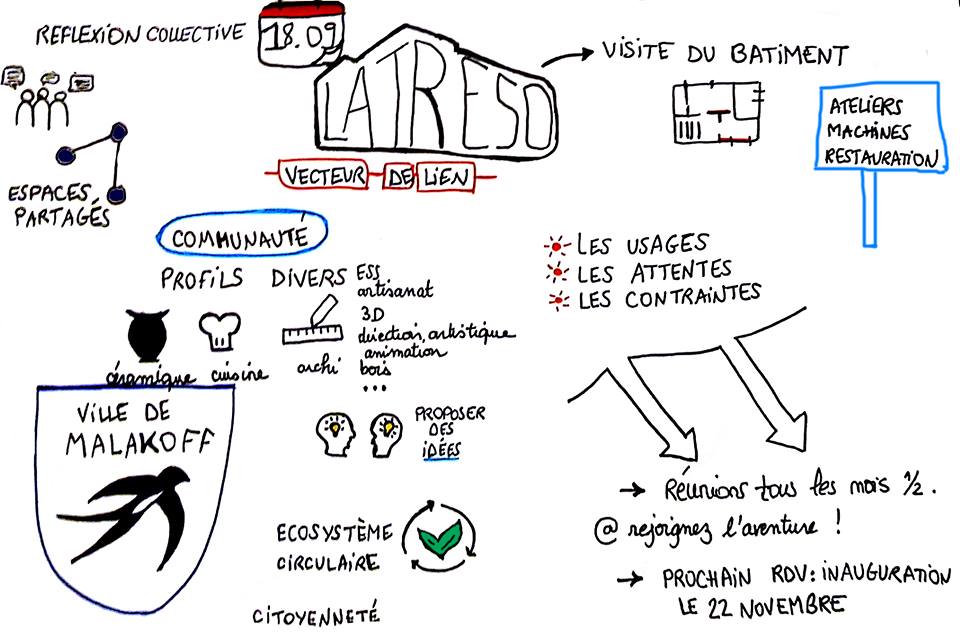 REFLEXION COLLECTIVE
18.09
LATRESO
VECTEUR DE LIEN
VISITE DU BATIMENT
ATELIERS
MACHINES
RESTAURATION
ESPACES
PARTAGÉS
COMMUNAUTÉ
PROFILS DIVERS
céramique
cuisine
archi
ESS
artisanat
3D
direction, artistique
animation
bois
...
LES USAGES
LES ATTENTES
LES CONTRAINTES
VILLE DE
MALAKOFF
PROPOSER
DES
IDÉES
ECOSYSTÈME
CIRCULAIRE
CITOYENNETÉ
→ Réunions tous les mois 1/2.
@ rejoignez l'aventure !
→ PROCHAIN RDV : INAUGURATION
LE 22 NOVEMBRE